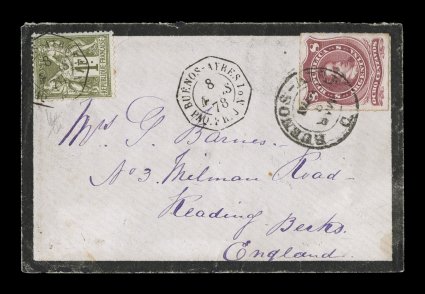 BUENOS-AYRES
8
78
BUENOS
Mrs G Barnes
No 3. Milman Road
Reading Berks.
England